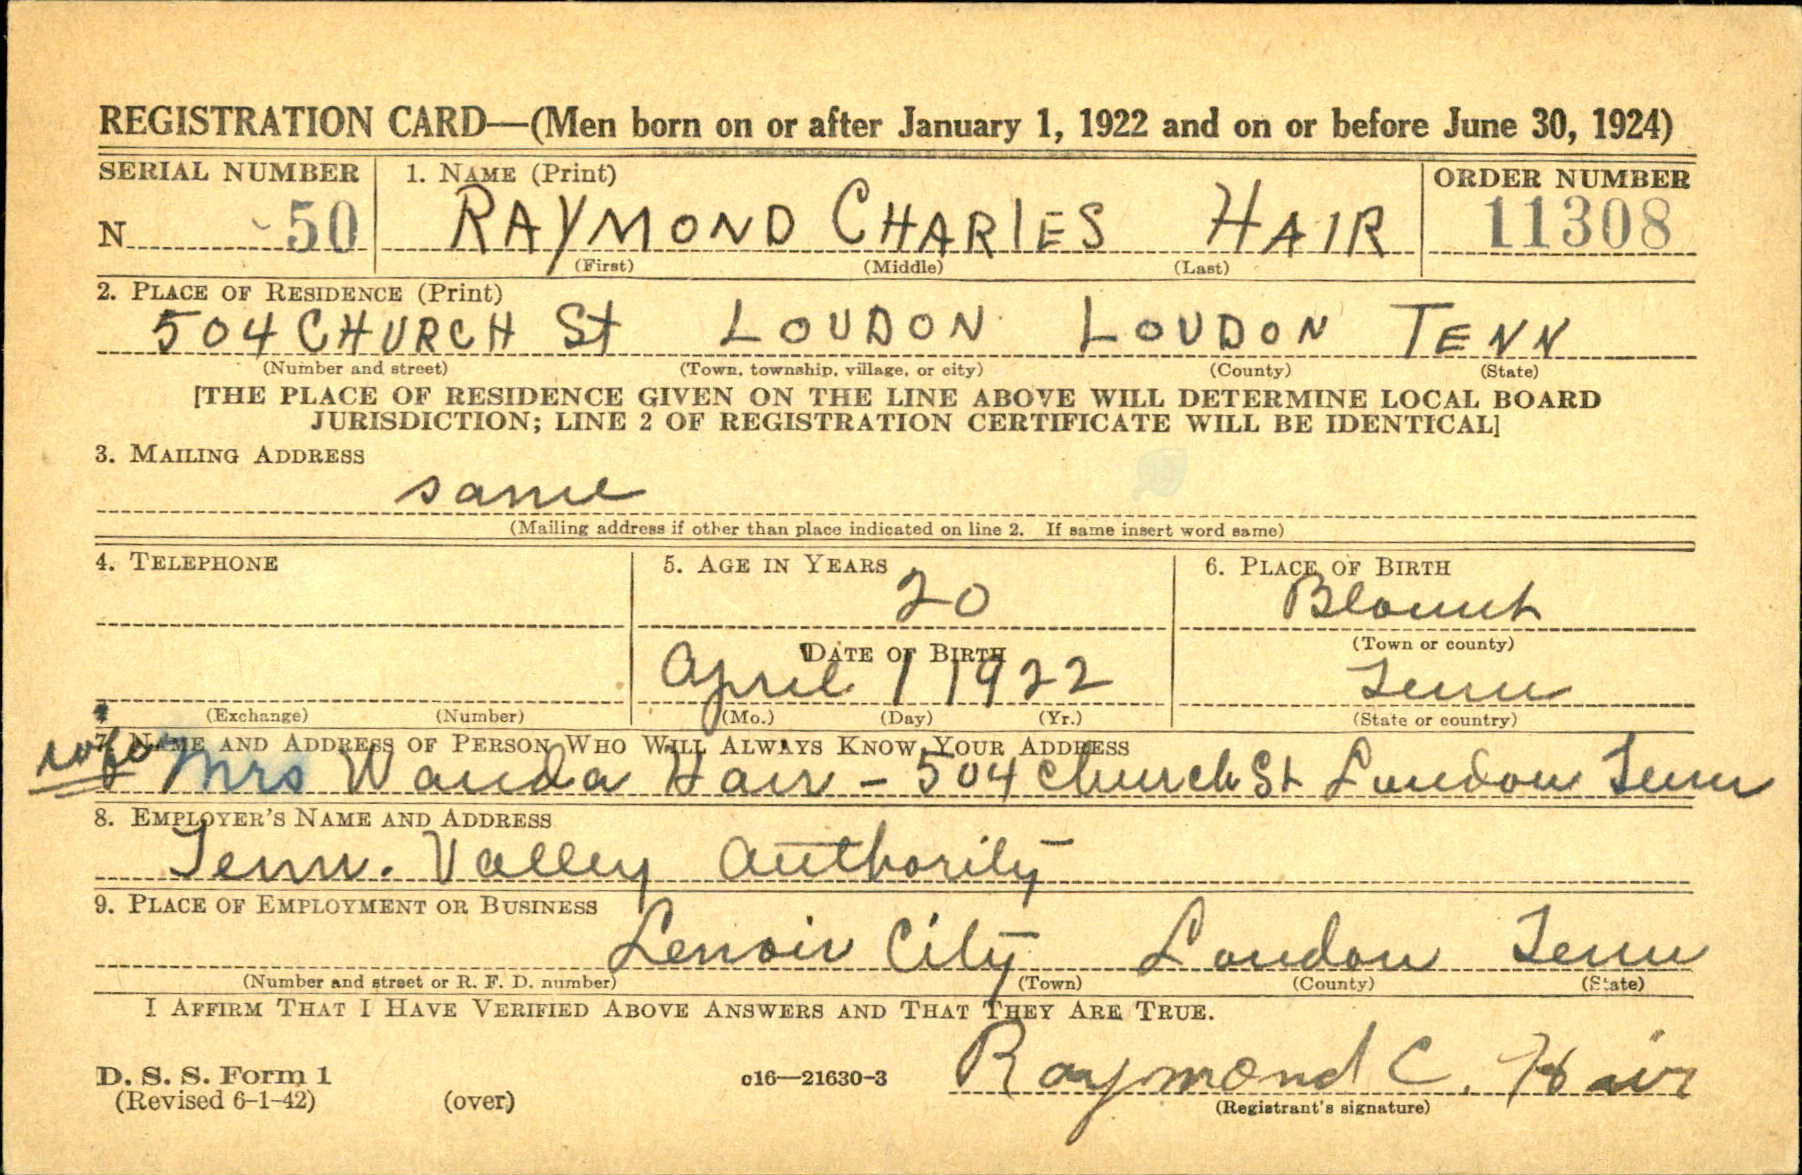 REGISTRATION CARD—(Men born on or after January 1, 1922 and on or before June 30, 1924)
SERIAL NUMBER 1. NAME (Print) ORDER NUMBER
N 50 RAYMOND CHARLES HAIR 11308
(First) (Middle) (Last)
2. PLACE OF RESIDENCE (Print)
504 CHURCH St LOUDON LOUDON TENN
(Number and street) (Town, township, village, or city) (County) (State)
[THE PLACE OF RESIDENCE GIVEN ON THE LINE ABOVE WILL DETERMINE LOCAL BOARD
JURISDICTION; LINE 2 OF REGISTRATION CERTIFICATE WILL BE IDENTICAL]
3. MAILING ADDRESS
same
(Mailing address if other than place indicated on line 2. If same insert word same)
4. TELEPHONE 5. AGE IN YEARS 6. PLACE OF BIRTH
20 Blount
DATE OF BIRTH (Town or county)
April 1 1922 Tenn
(Exchange) (Number) (Mo.) (Day) (Yr.) (State or country)
7. NAME AND ADDRESS OF PERSON WHO WILL ALWAYS KNOW YOUR ADDRESS
wife Mrs Wanda Hair - 504 Church St Loudon Tenn
8. EMPLOYER'S NAME AND ADDRESS
Tenn. Valley Authority
9. PLACE OF EMPLOYMENT OR BUSINESS
Lenoir City Loudon Tenn
(Number and street or R. F. D. number) (Town) (County) (State)
I AFFIRM THAT I HAVE VERIFIED ABOVE ANSWERS AND THAT THEY ARE TRUE.
D. S. S. Form 1 c16—21630-3 Raymond C. Hair
(Revised 6-1-42) (over) (Registrant's signature)